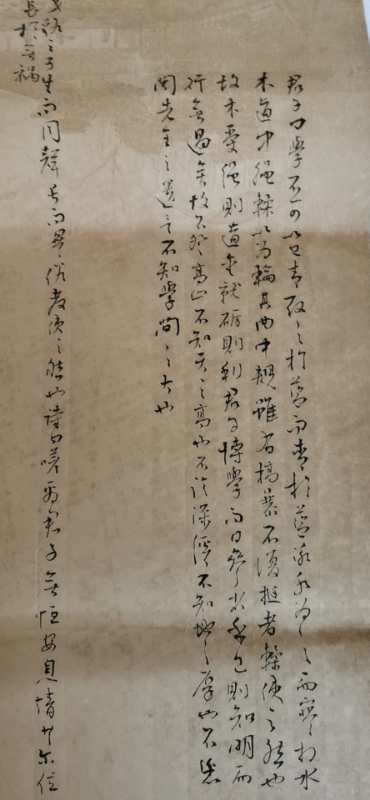 君子曰學不可以已青取之於藍而青於藍冰水為之而寒於水
木直中繩輮以為輪其曲中規雖有槁暴不復挺者輮使之然也
故木受繩則直金就礪則利君子博學而日參省乎己則知明而
行無過矣故不登高山不知天之高也不臨深谿不知地之厚也不
聞先王之遺言不知學問之大也
之子生而同聲長而異俗教使之然也詩曰嗟爾君子無恒安息靖共爾位
長於無禍